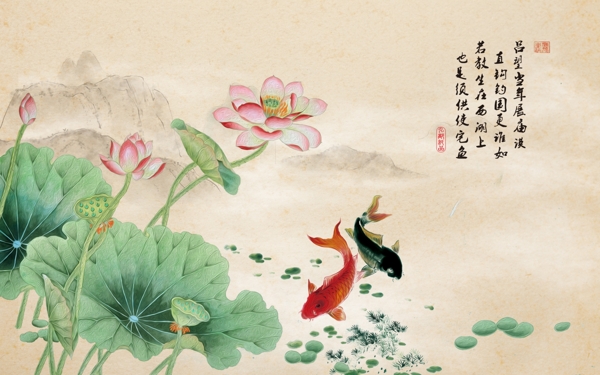 吕望当年展庙谟
直钩钓国更谁如
若教生在西湖上
也是须供使宅鱼